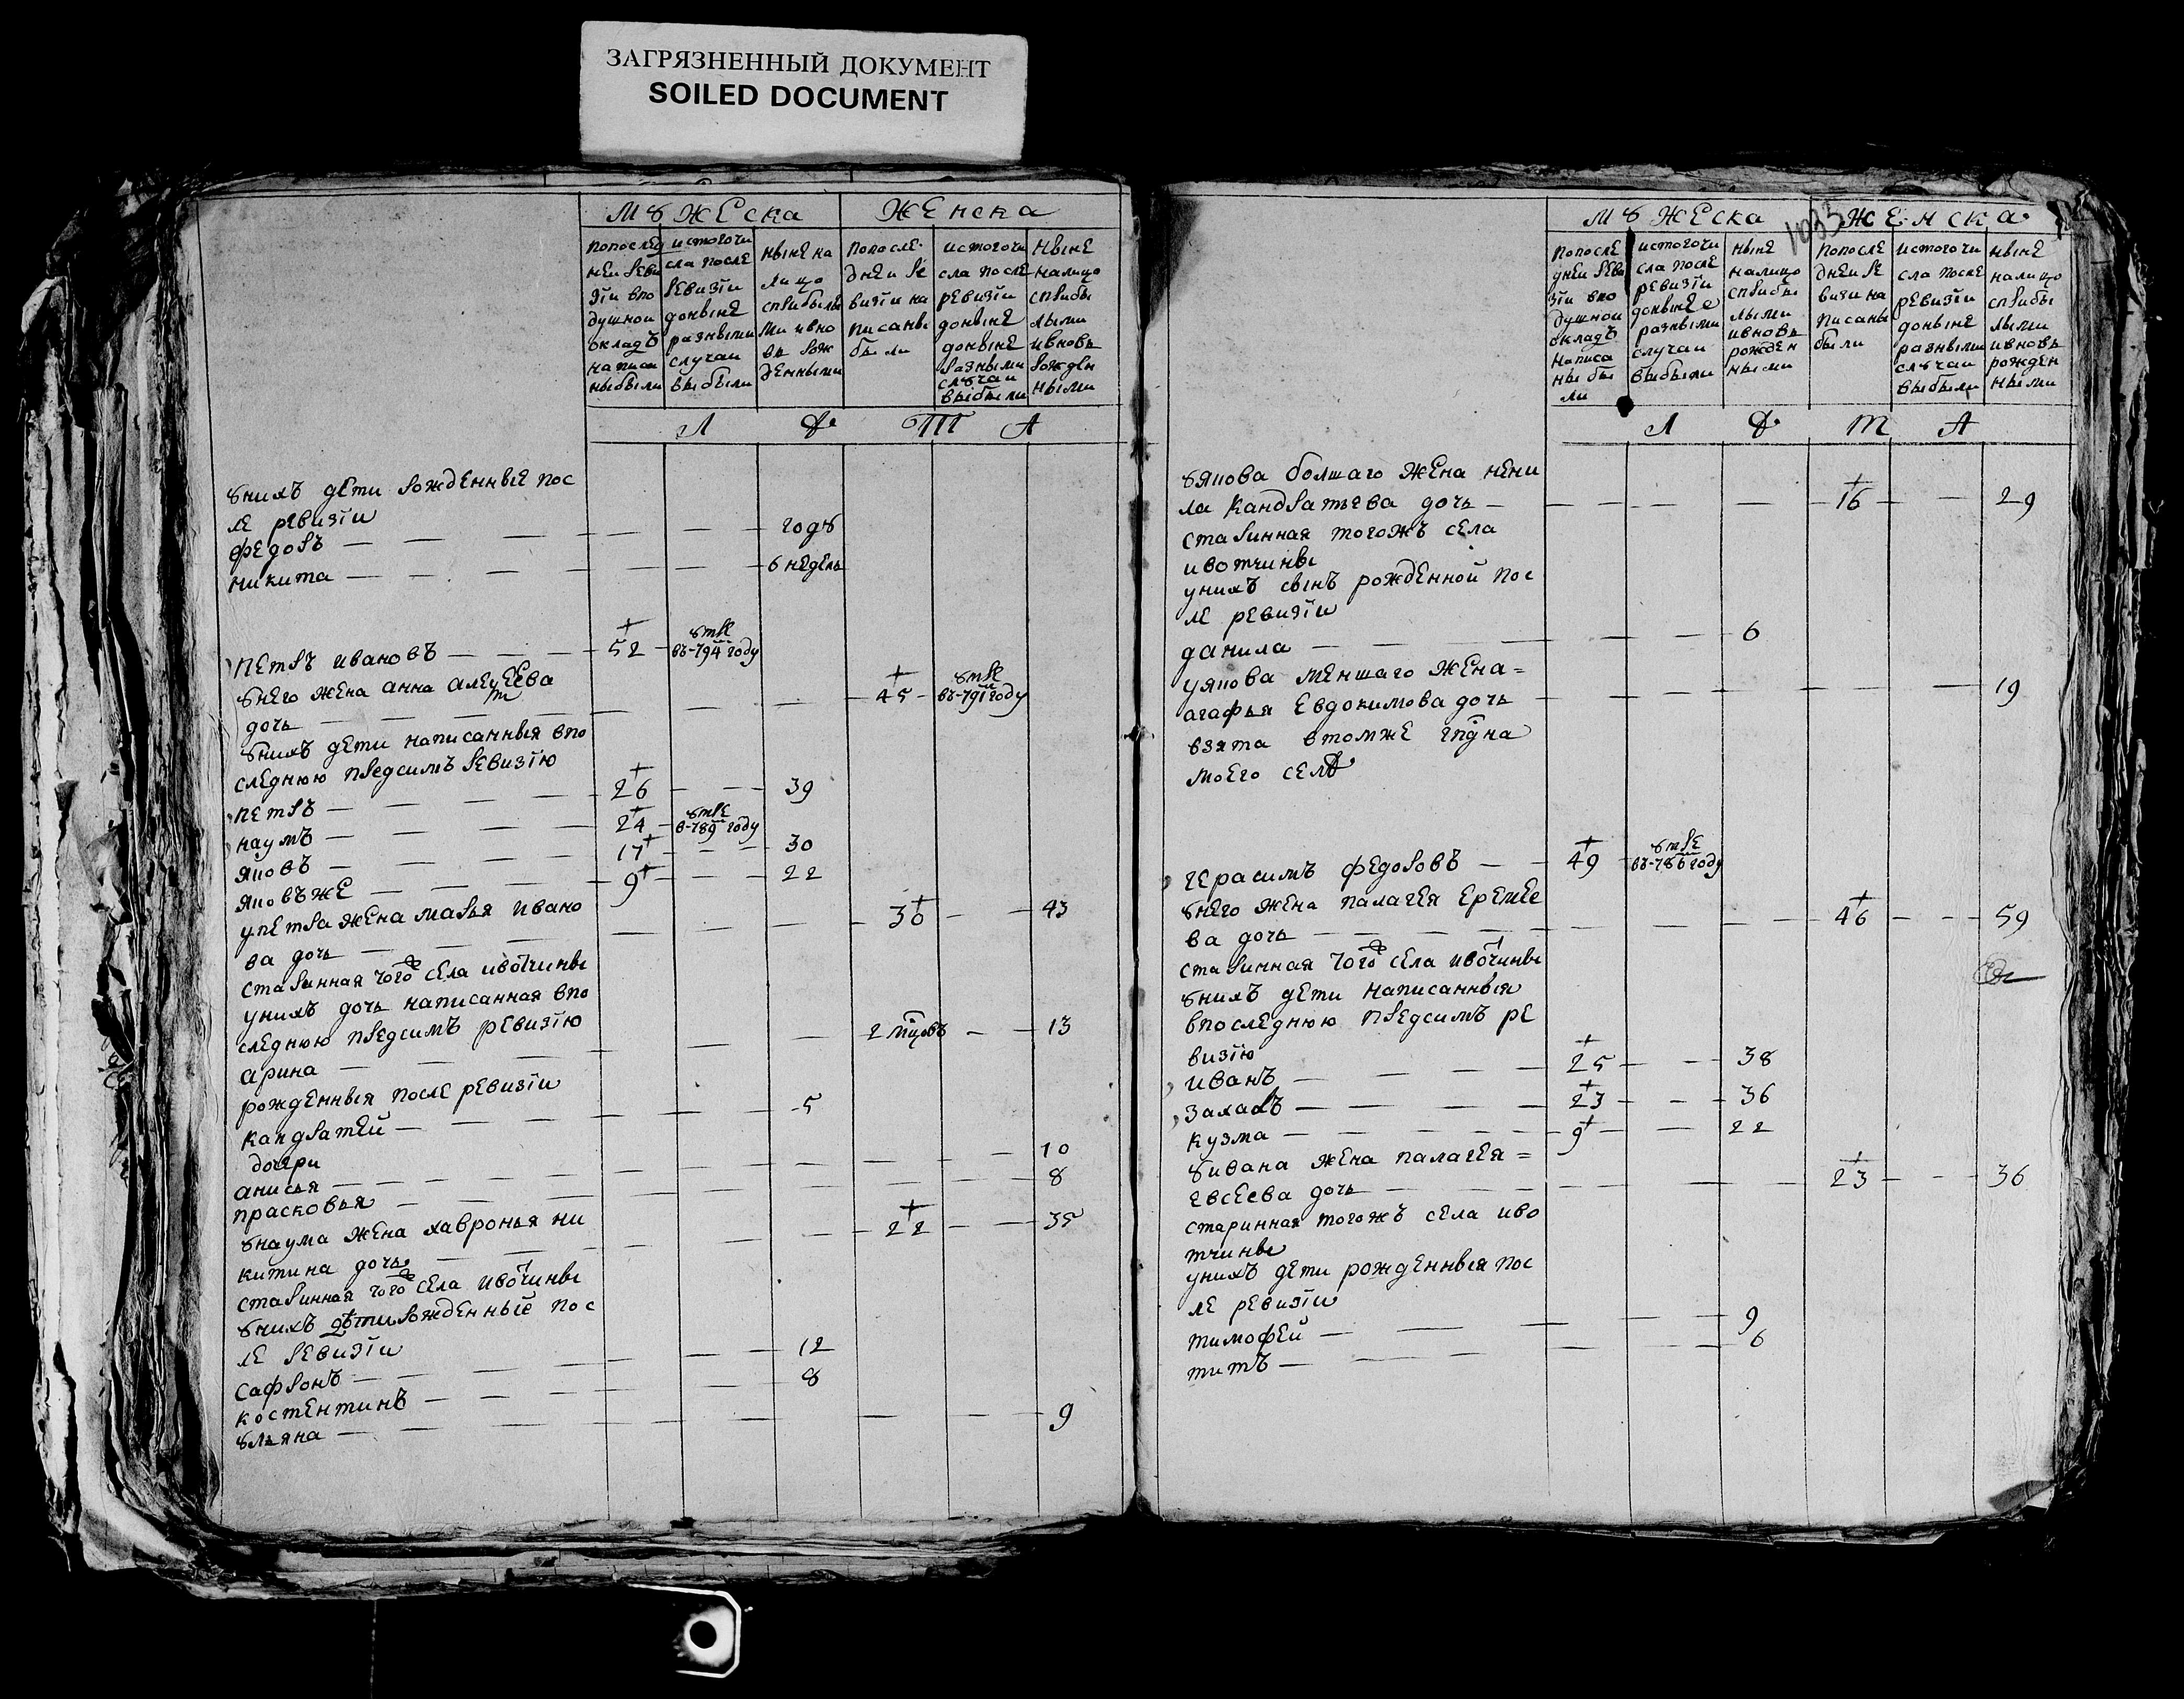 ЗАГРЯЗНЕННЫЙ ДОКУМЕНТ
SOILED DOCUMENT
Мȣжеска Женска
попослед
неи реви
зїи впо
душнои
окладъ
написа
ныбыли
истогочи
сла после
ревизїи
донынѣ
разными
случаи
выбыли
нынѣ на
лицо
сприбылы
ми ивно
вь рож
денными
попосле
днеи ре
визїи на
писаны
были
истогочи
сла после
ревизїи
донынѣ
донынѣ
разными
слȣчаи
выбыли
нынѣ
налицо
сприбы
лыми
ивновь
рожден
ными
Л Ѣ Т А
ȣнихъ дети рожденныя пос
ле ревизїи
федоръ — — — — годȣ
никита — — — — 6 недель
петръ ивановъ — — 52 ȣмре въ 794 году
ȣнего жена анна алексеева
дочь — — — 45 ȣмре въ 791 году
ȣнихъ дети написанныя впо
следнюю предсимъ ревизїю
петръ — — — 26 — 39
наумъ — — — 24 ȣмре в 789 году
яковъ — — — 17 — 30
яковъже — — — 9 — 22
упетра жена марья ивано
ва дочь — — — 30 — 43
старинная тогожъ села ивотчины
унихъ дочь написанная впо
следнюю предсимъ ревизїю
арина — — — 2 мцовъ — 13
рожденныя после ревизїи
кандратей — — — 5
дочери
анисья — — — 10
прасковья — — — 8
ȣнаума жена хавронья ни
китина дочь — — 22 — 35
старинная тогожъ села ивотчины
ȣнихъ дѣти рожденные пос
ле ревизїи
сафронъ — — — 12
костентинъ — — — 8
ȣльяна — — — 9
1035
Мȣжеска Женска
попосле
днеи реви
зїи впо
душнои
окладъ
написа
ны бы
ли
истогочи
сла после
ревизїи
донынѣ
разными
случаи
выбыли
нынѣ
налицо
сприбы
лыми
ивновь
рожден
ными
попосле
днеи ре
визи на
писаны
были
истогочи
сла после
ревизїи
донынѣ
разными
слȣчаи
выбыли
нынѣ
налицо
сприбы
лыми
ивновь
рожден
ными
Л Ѣ Т А
ȣякова болшаго жена нени
ла кандратьева дочь — 16 — 29
старинная тогожъ села
ивотчины
унихъ сынъ рожденной пос
ле ревизїи
данила — — — 6
уякова меншаго жена =
агафья евдокимова дочь — 19
взята втомже гпдна
моего селѣ
герасимъ федоровъ — — 49 ȣмре въ 786 году
ȣнего жена палагея еремее
ва дочь — — — 46 — 59
старинная тогожъ села ивотчины
ȣнихъ дети написанныя
впоследнюю предсимъ ре
визїю
иванъ — — — 25 — 38
захаръ — — — 23 — 36
кузма — — — 9 — 22
ȣивана жена палагея =
евсеева дочь — — 23 — 36
старинная тогожъ села иво
тчины
унихъ дети рожденныя пос
ле ревизїи
тимофей — — — 9
титъ — — — 6